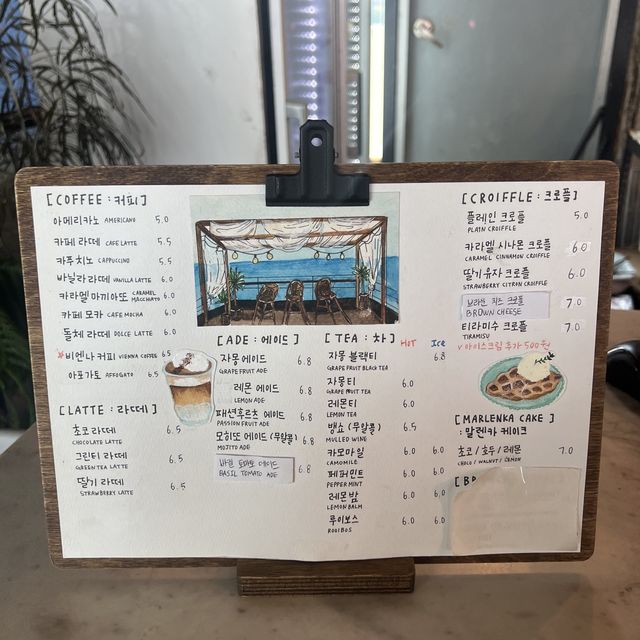 [COFFEE : 커피]
아메리카노 AMERICANO 5.0
카페 라떼 CAFE LATTE 5.5
카푸치노 CAPPUCCINO 5.5
바닐라 라떼 VANILLA LATTE 6.0
카라멜 마끼아또 CARAMEL MACCHIATO 6.0
카페 모카 CAFE MOCHA 6.0
돌체 라떼 DOLCE LATTE 6.0
비엔나 커피 VIENNA COFFEE 6.5
아포가토 AFFOGATO 6.5
[LATTE : 라떼]
초코 라떼 6.5
CHOCOLATE LATTE
그린티 라떼 6.5
GREEN TEA LATTE
딸기 라떼 6.5
STRAWBERRY LATTE
[ADE : 에이드]
자몽 에이드 6.8
GRAPEFRUIT ADE
레몬 에이드 6.8
LEMON ADE
패션후르츠 에이드 6.8
PASSION FRUIT ADE
모히또 에이드 (무알콜) 6.8
MOJITO ADE
바질 토마토 에이드 6.8
BASIL TOMATO ADE
[TEA : 차] HOT Ice
자몽 블랙티 6.8
GRAPE FRUIT BLACK TEA
자몽티 6.0
GRAPE FRUIT TEA
레몬티 6.0
LEMON TEA
뱅쇼 (무알콜) 6.5
MULLED WINE
카모마일 6.0 6.0
CAMOMILE
페퍼민트 6.0 6.0
PEPPER MINT
레몬밤 6.0 6.0
LEMON BALM
루이보스 6.0 6.0
ROOIBOS
[CROIFFLE : 크로플]
플레인 크로플 5.0
PLAIN CROIFFLE
카라멜 시나몬 크로플 6.0
CARAMEL CINNAMON CROIFFLE
딸기유자 크로플 6.0
STRAWBERRY CITRON CROIFFLE
브라운 치즈 크로플 7.0
BROWN CHEESE
티라미수 크로플 7.0
TIRAMISU
✓아이스크림 추가 500원
[MARLENKA CAKE]
: 말렌카 케이크
초코 / 호두 / 레몬 7.0
CHOCO / WALNUT / LEMON